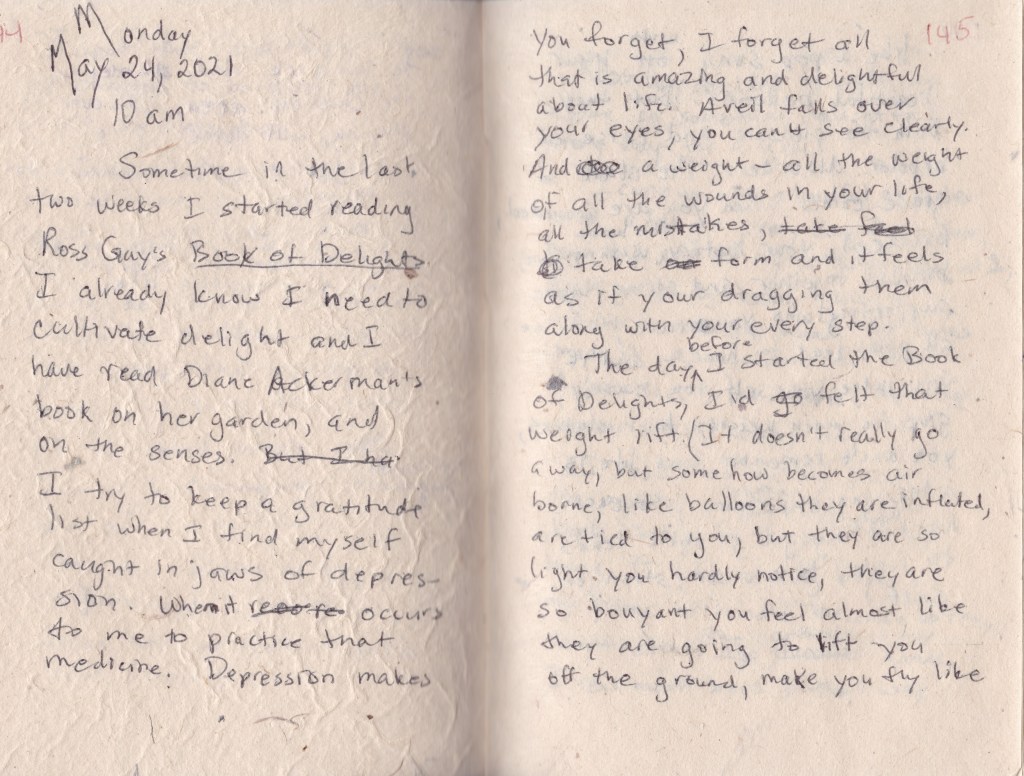 94
Monday
May 24, 2021
10 am
Sometime in the last
two weeks I started reading
Ross Gay's Book of Delights.
I already know I need to
cultivate delight and I
have read Diane Ackerman's
book on her garden, and
on the senses. But I ha
I try to keep a gratitude
list when I find myself
caught in jaws of depres-
sion. When it occurs
to me to practice that
medicine. Depression makes
145
You forget, I forget all
that is amazing and delightful
about life. A veil falls over
your eyes, you can't see clearly.
And a weight - all the weight
of all the wounds in your life,
all the mistakes, take feel
take form and it feels
as if your dragging them
along with your every step.
The day before I started the Book
of Delights, I'd go felt that
weight rift. (It doesn't really go
away, but somehow becomes air
borne, like balloons they are inflated,
are tied to you, but they are so
light. you hardly notice, they are
so bouyant you feel almost like
they are going to lift you
off the ground, make you fly like